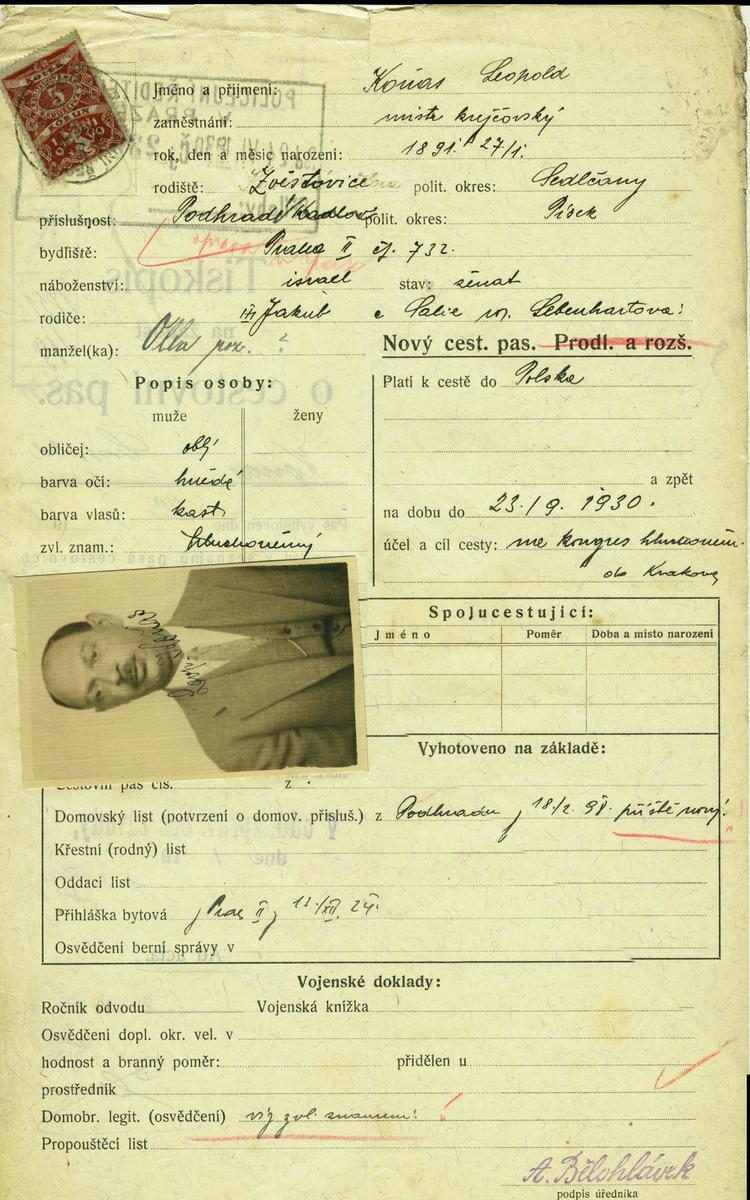 5
KORUN
POLICEJNÍ ŘEDITEL
Jméno a příjmení: Kohas Leopold
zaměstnání: mistr krejčovský
rok, den a měsíc narození: 1891. 27/1.
rodiště: Zvěstovice polit. okres: Sedlčany
příslušnost: Podhradí polit. okres: Písek
bydliště: Praha II čj. 732.
náboženství: israel stav: ženat
rodiče: Jakub a Salie roz. Lebenhartova.
manžel(ka): Otta roz. ?
Nový cest. pas. Prodl. a rozš.
Popis osoby:
muže ženy
obličej: oblý
barva očí: hnědé
barva vlasů: kašt
zvl. znam.: hluchoněmý
Platí k cestě do Polska
a zpět
na dobu do 23./9. 1930.
účel a cíl cesty: na kongres hluchoněm.
do Krakova
Spolucestující:
Jméno Poměr Doba a místo narození
Vyhotoveno na základě:
Cestovní pas čís. z
Domovský list (potvrzení o domov. přísluš.) z Podhradu 18/2. příště nový!
Křestní (rodný) list
Oddací list
Přihláška bytová Praha II, 13./XII. 24.
Osvědčení berní správy v
Vojenské doklady:
Ročník odvodu Vojenská knížka
Osvědčení dopl. okr. vel. v
hodnost a branný poměr: přidělen u
prostředník
Domobr. legit. (osvědčení) viz zvl. znamení!
Propouštěcí list
A. Bělohlávek
podpis úředníka